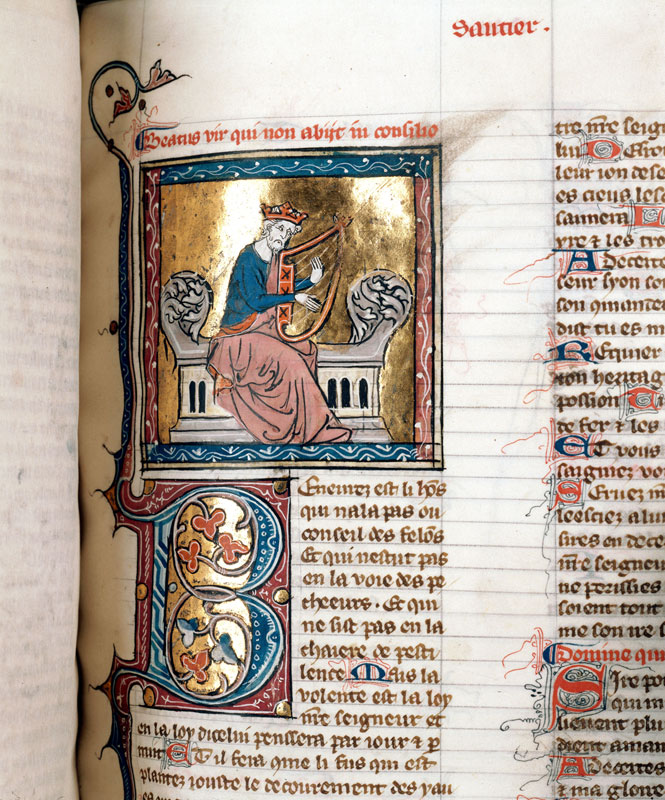 Sautier.
Beatus vir qui non abijt in consilio
Beneurez est li hõs
qui nala pas ou
conseil des felõs
Et qui nestut pas
en la voie des pe
cheeurs. Et qui
ne sist pas en la
chaiere de pesti
lence Mais la
volente est la loy
nr̃e seigneur et
en la loy dicelui penssera par iour et p
nuit Et il sera ausi
plantez iouste le decourement des yau
tre nr̃e seig
lui
leur
es cieus les
saumera
yre ⁊ les tro
A Decerte
seur syon so
son qmande
dist tu es m
Requier
ton herita
possion
de fer ⁊ les
ET vous
saigniez vo
Seruez
leesciez a lui
sires en
nr̃e seigneu
ne perissies
soient tout
me son ire s
Domine qui
Sire po
qui m
lieuent plu
dient a mam
A Decertes
⁊ ma gloire